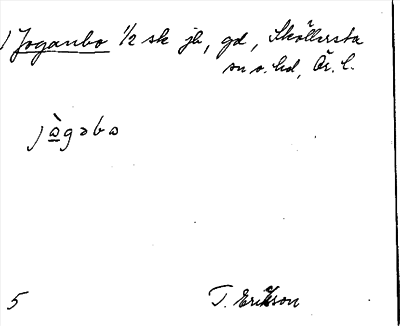 ) Joganbo 1/2 sk jb, gd, Sköllersta
sn o. hd, Ör. l.
jògəbo
5
T. Ericsson